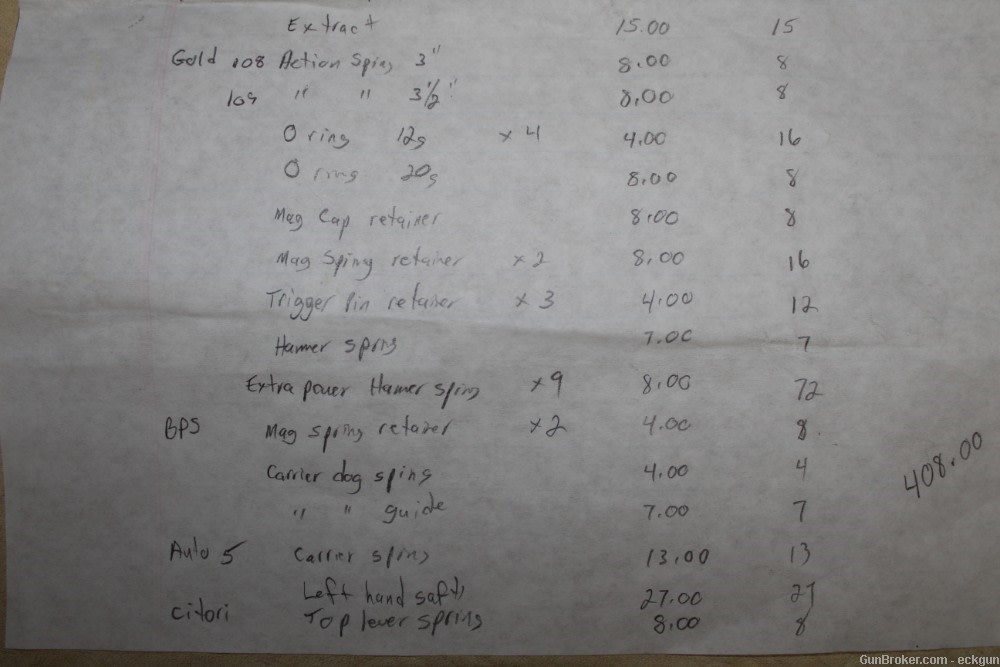 Extract 15.00 15
Gold 108 Action Spring 3" 8.00 8
109 " " 3 1/2" 8.00 8
O ring 12g x 4 4.00 16
O ring 20g 8.00 8
Mag Cap retainer 8.00 8
Mag Spring retainer x 2 8.00 16
Trigger Pin retainer x 3 4.00 12
Hammer spring 7.00 7
Extra power Hamer spring x9 8.00 72
BPS Mag spring retainer x2 4.00 8
Carrier dog spring 4.00 4
" " guide 7.00 7
408.00
Auto 5 Carrier spring 13.00 13
Left hand safty 27.00 27
Citori Top lever spring 8.00 8
GunBroker.com - eckgun